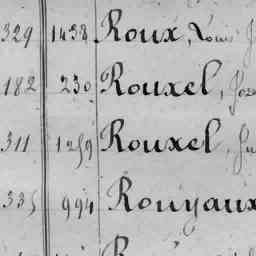 329 1438 Roux, Louis J
182 230 Rouxel, Jos
311 1259 Rouxel, Ju
335 994 Rouyaux